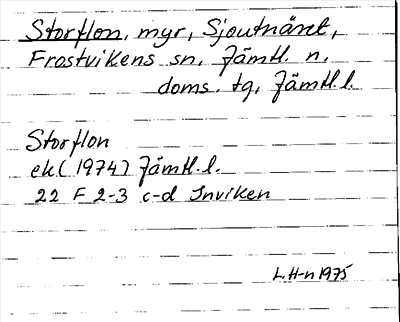 Storflon, myr, Sjoutnäset,
Frostvikens sn, Jämtl. n.
doms. tg, Jämtl. l.
Storflon
ek (1974) Jämtl. l.
22 F 2-3 c-d Inviken
L. H-n 1975